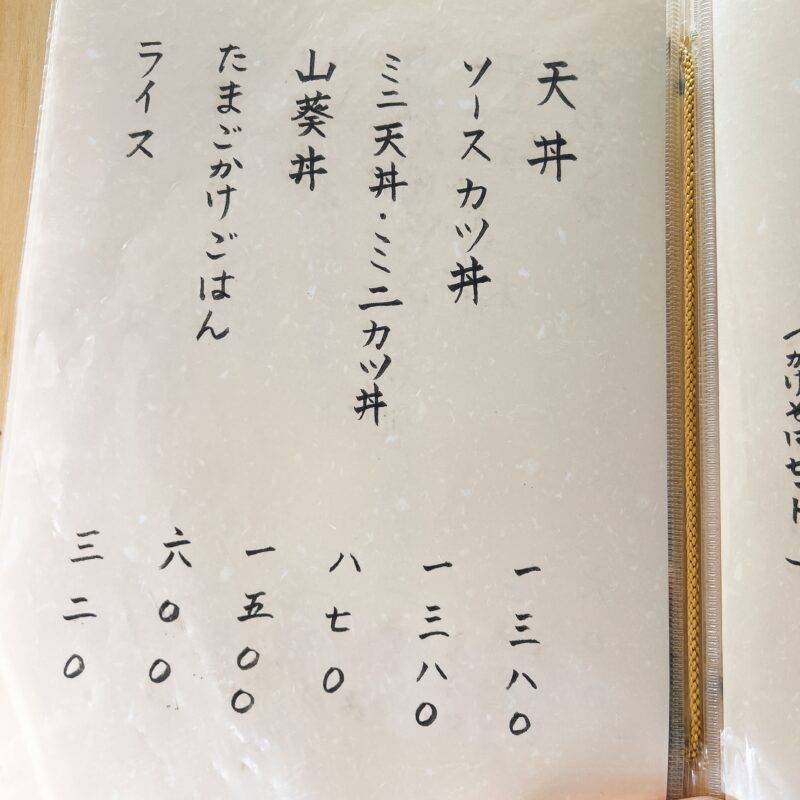 天丼
一三八〇
ソースカツ丼
一三八〇
ミニ天丼・ミニカツ丼
八七〇
山葵丼
一五〇〇
たまごかけごはん
六〇〇
ライス
三二〇
（かけそばセット）